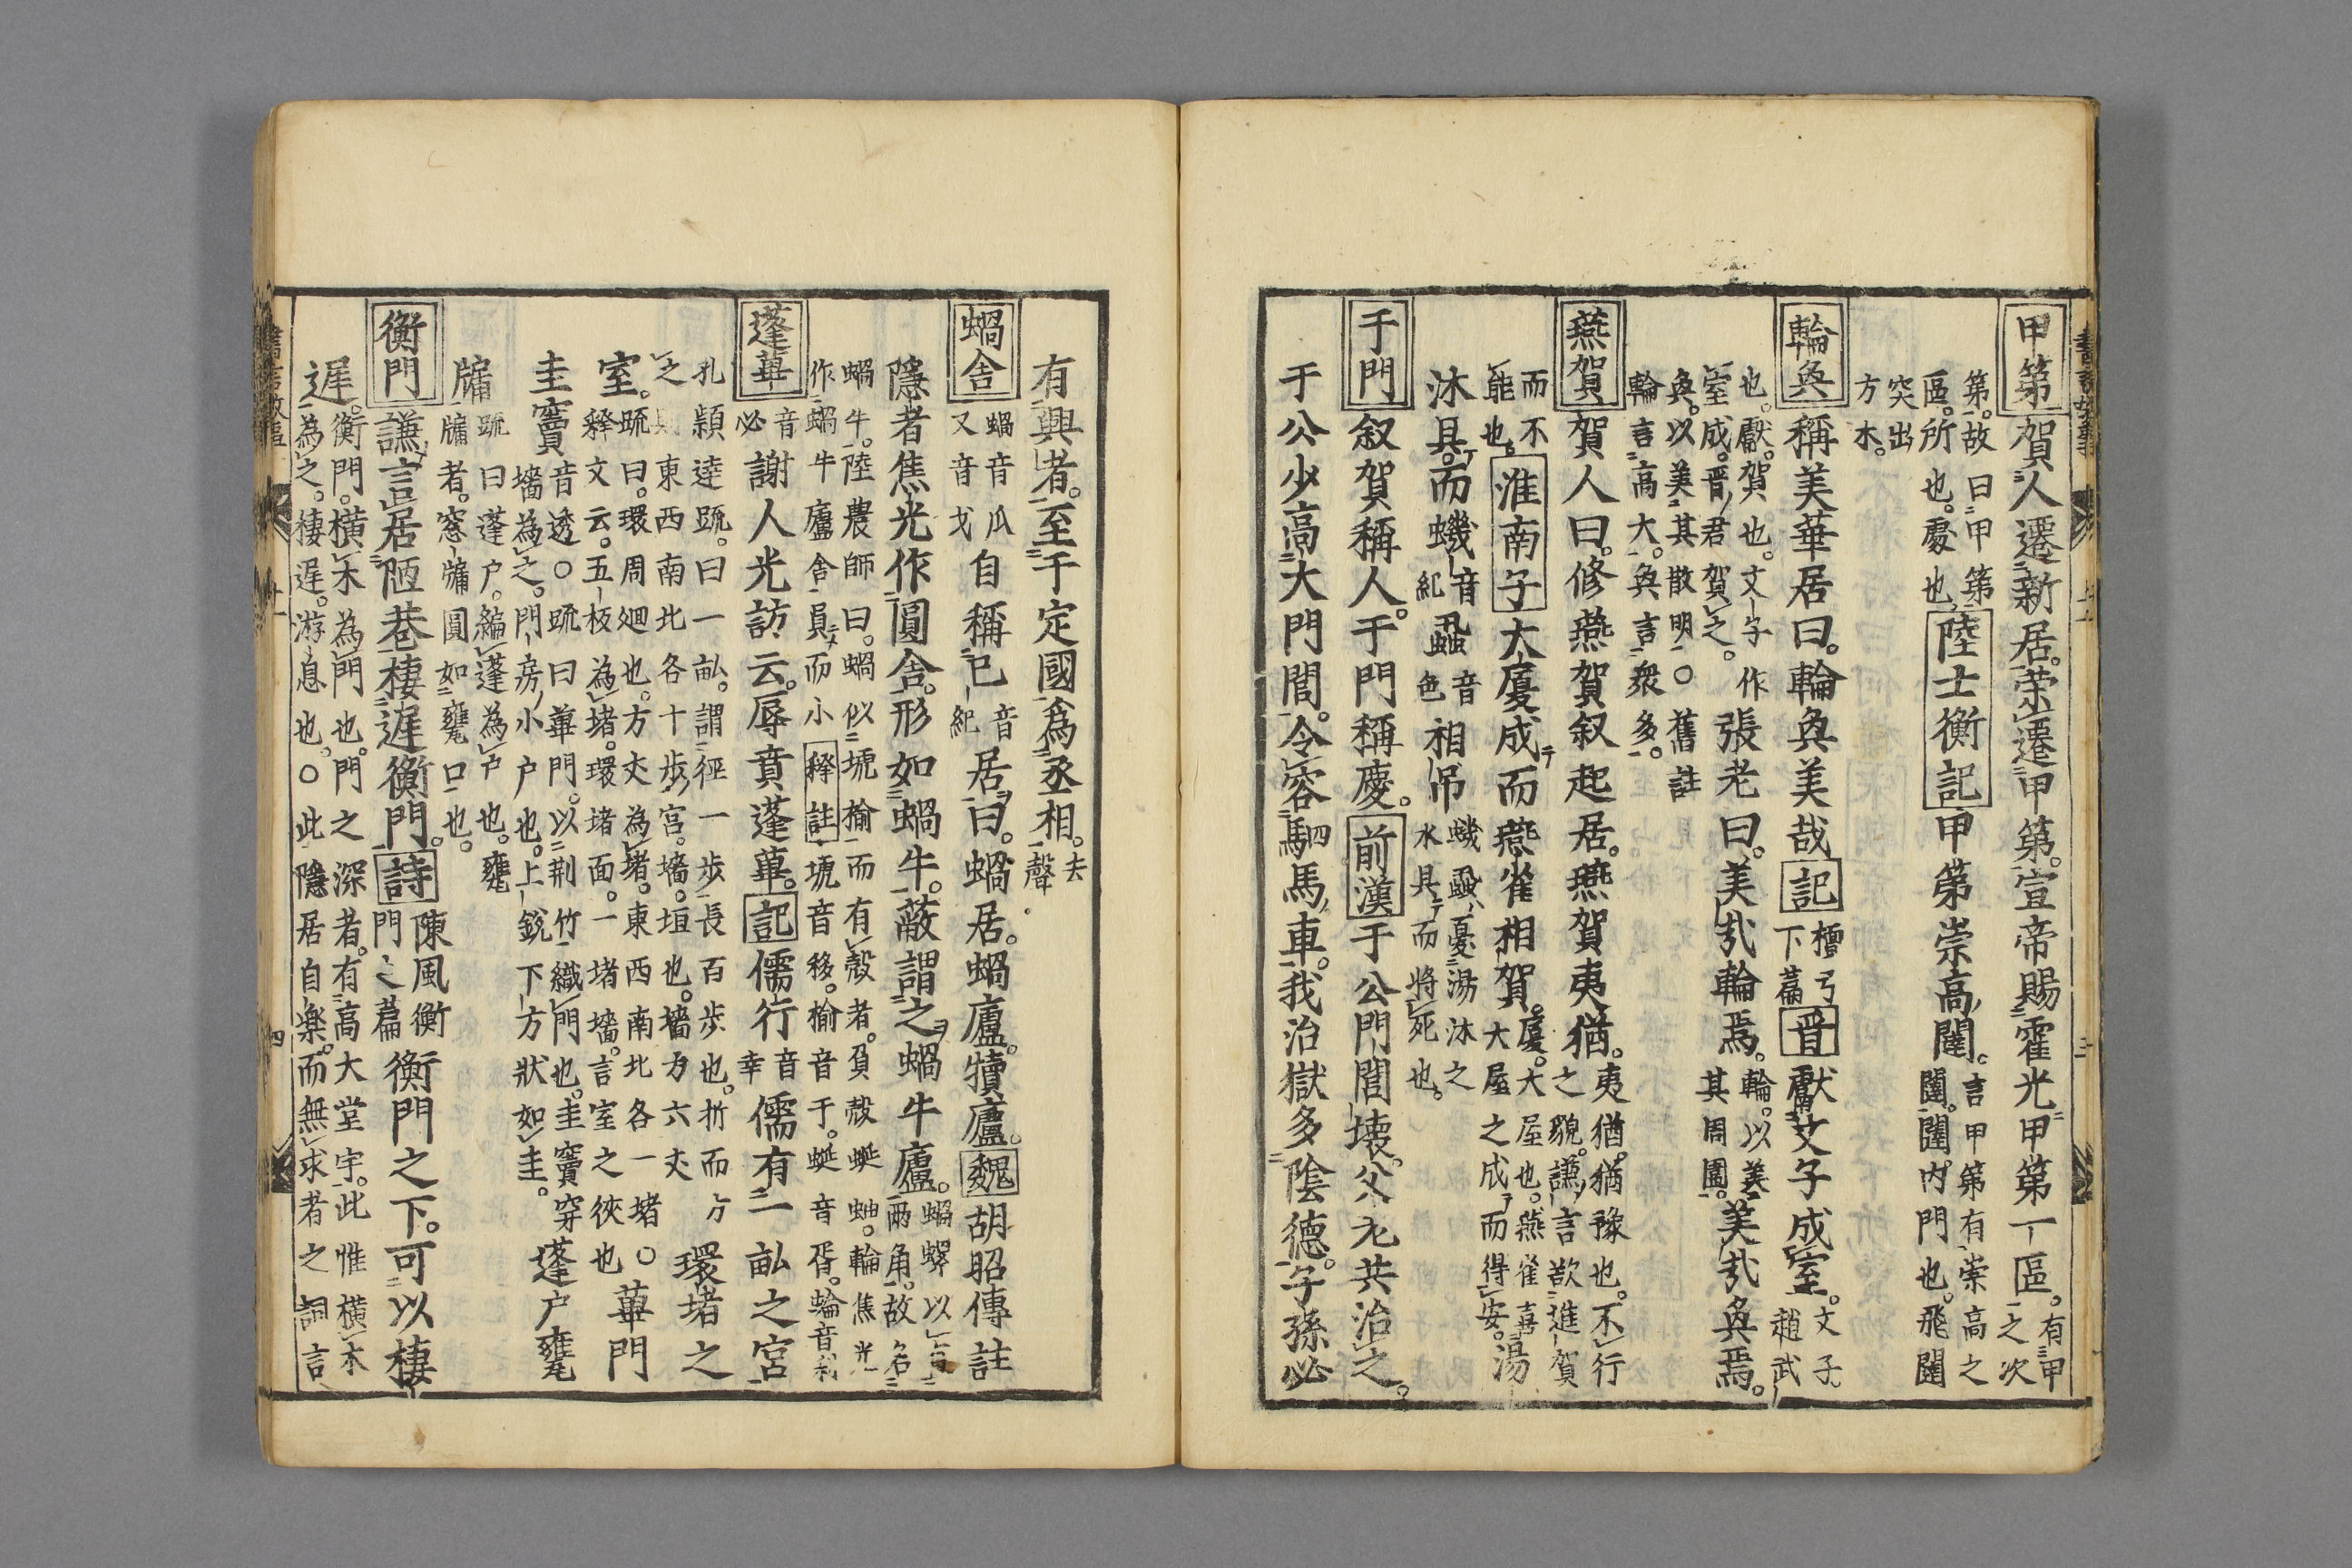 甲第賀人遷新居。榮遷甲第。宣帝賜霍光甲第一區。有甲之次
第。故曰甲第區。所也。處也陸士衡記甲第崇高闥。言甲第有崇高之闥。闥。内門也。飛闥
突出方木。
輪奐稱美華居曰。輪奐美哉記檀弓下篇晋獻文子成室。文子。趙武
也。獻。賀也。文子作室成。晋君賀之。張老曰。美哉輪焉。輪。以美其周圍。美哉奐焉。
奐。以美其散明○舊註輪言高大。奐言衆多。
燕賀賀人曰。修燕賀叙起居。燕賀夷猶。夷猶。猶豫也。不行之貌。謙言欲進賀
而不能也。淮南子大廈成而燕雀相賀。廈。大屋也。燕雀喜大屋之成而得安。湯
沐具。而蟣音紀蝨音色相吊蟣蝨憂湯沐之水具而將死也。
于門叙賀稱人。于門稱慶。前漢于公門閭壊。父老共治之。
于公少高大門閭。令容駟馬車。我治獄多陰德。子孫必
有興者。至于定國爲丞相。去聲
蝸舎蝸音瓜又音戈自稱已音紀居曰。蝸居。蝸廬。犢廬。魏胡昭傳註
隱者焦光作圓舎。形如蝸牛。蔽謂之蝸牛廬。蝸螺以有兩角。故名
蝸牛。陸農師曰。蝸似蚅榆而有殻者。負殻蜒蚰。輪焦光作蝸牛廬舎員而小釋註蚅音移。榆音于。蜒音胥。蝓音我
蓬蓽音必謝人光訪云。辱賁蓬蓽。記儒行音幸儒有一畝之宮
孔頴達䟽。曰一畝。謂徑一歩長百歩也。折而方之則東西南北各十歩宮。墻。垣也。墻方六丈環堵之
室。䟽曰。環周廻也。方丈為堵。東西南北各一堵○釋文云。五板為堵。環堵面。一堵墻。言室之狹也蓽門
圭竇音透○䟽曰蓽門。以荆竹織門也。圭竇穿墻為之。門房小户也。上鋭下方狀如圭。蓬户甕
牖䟽曰蓬户。編蓬為户也。甕牖者。窓牖圓如甕口也。
衡門謙言居陋巷棲遲衡門。詩陳風衡門之篇衡門之下。可以棲
遲。衡門。横木為門也。門之深者。有高大堂宇。此惟横木為之。棲遲。游息也。○此隱居自樂。而無求者之詞言